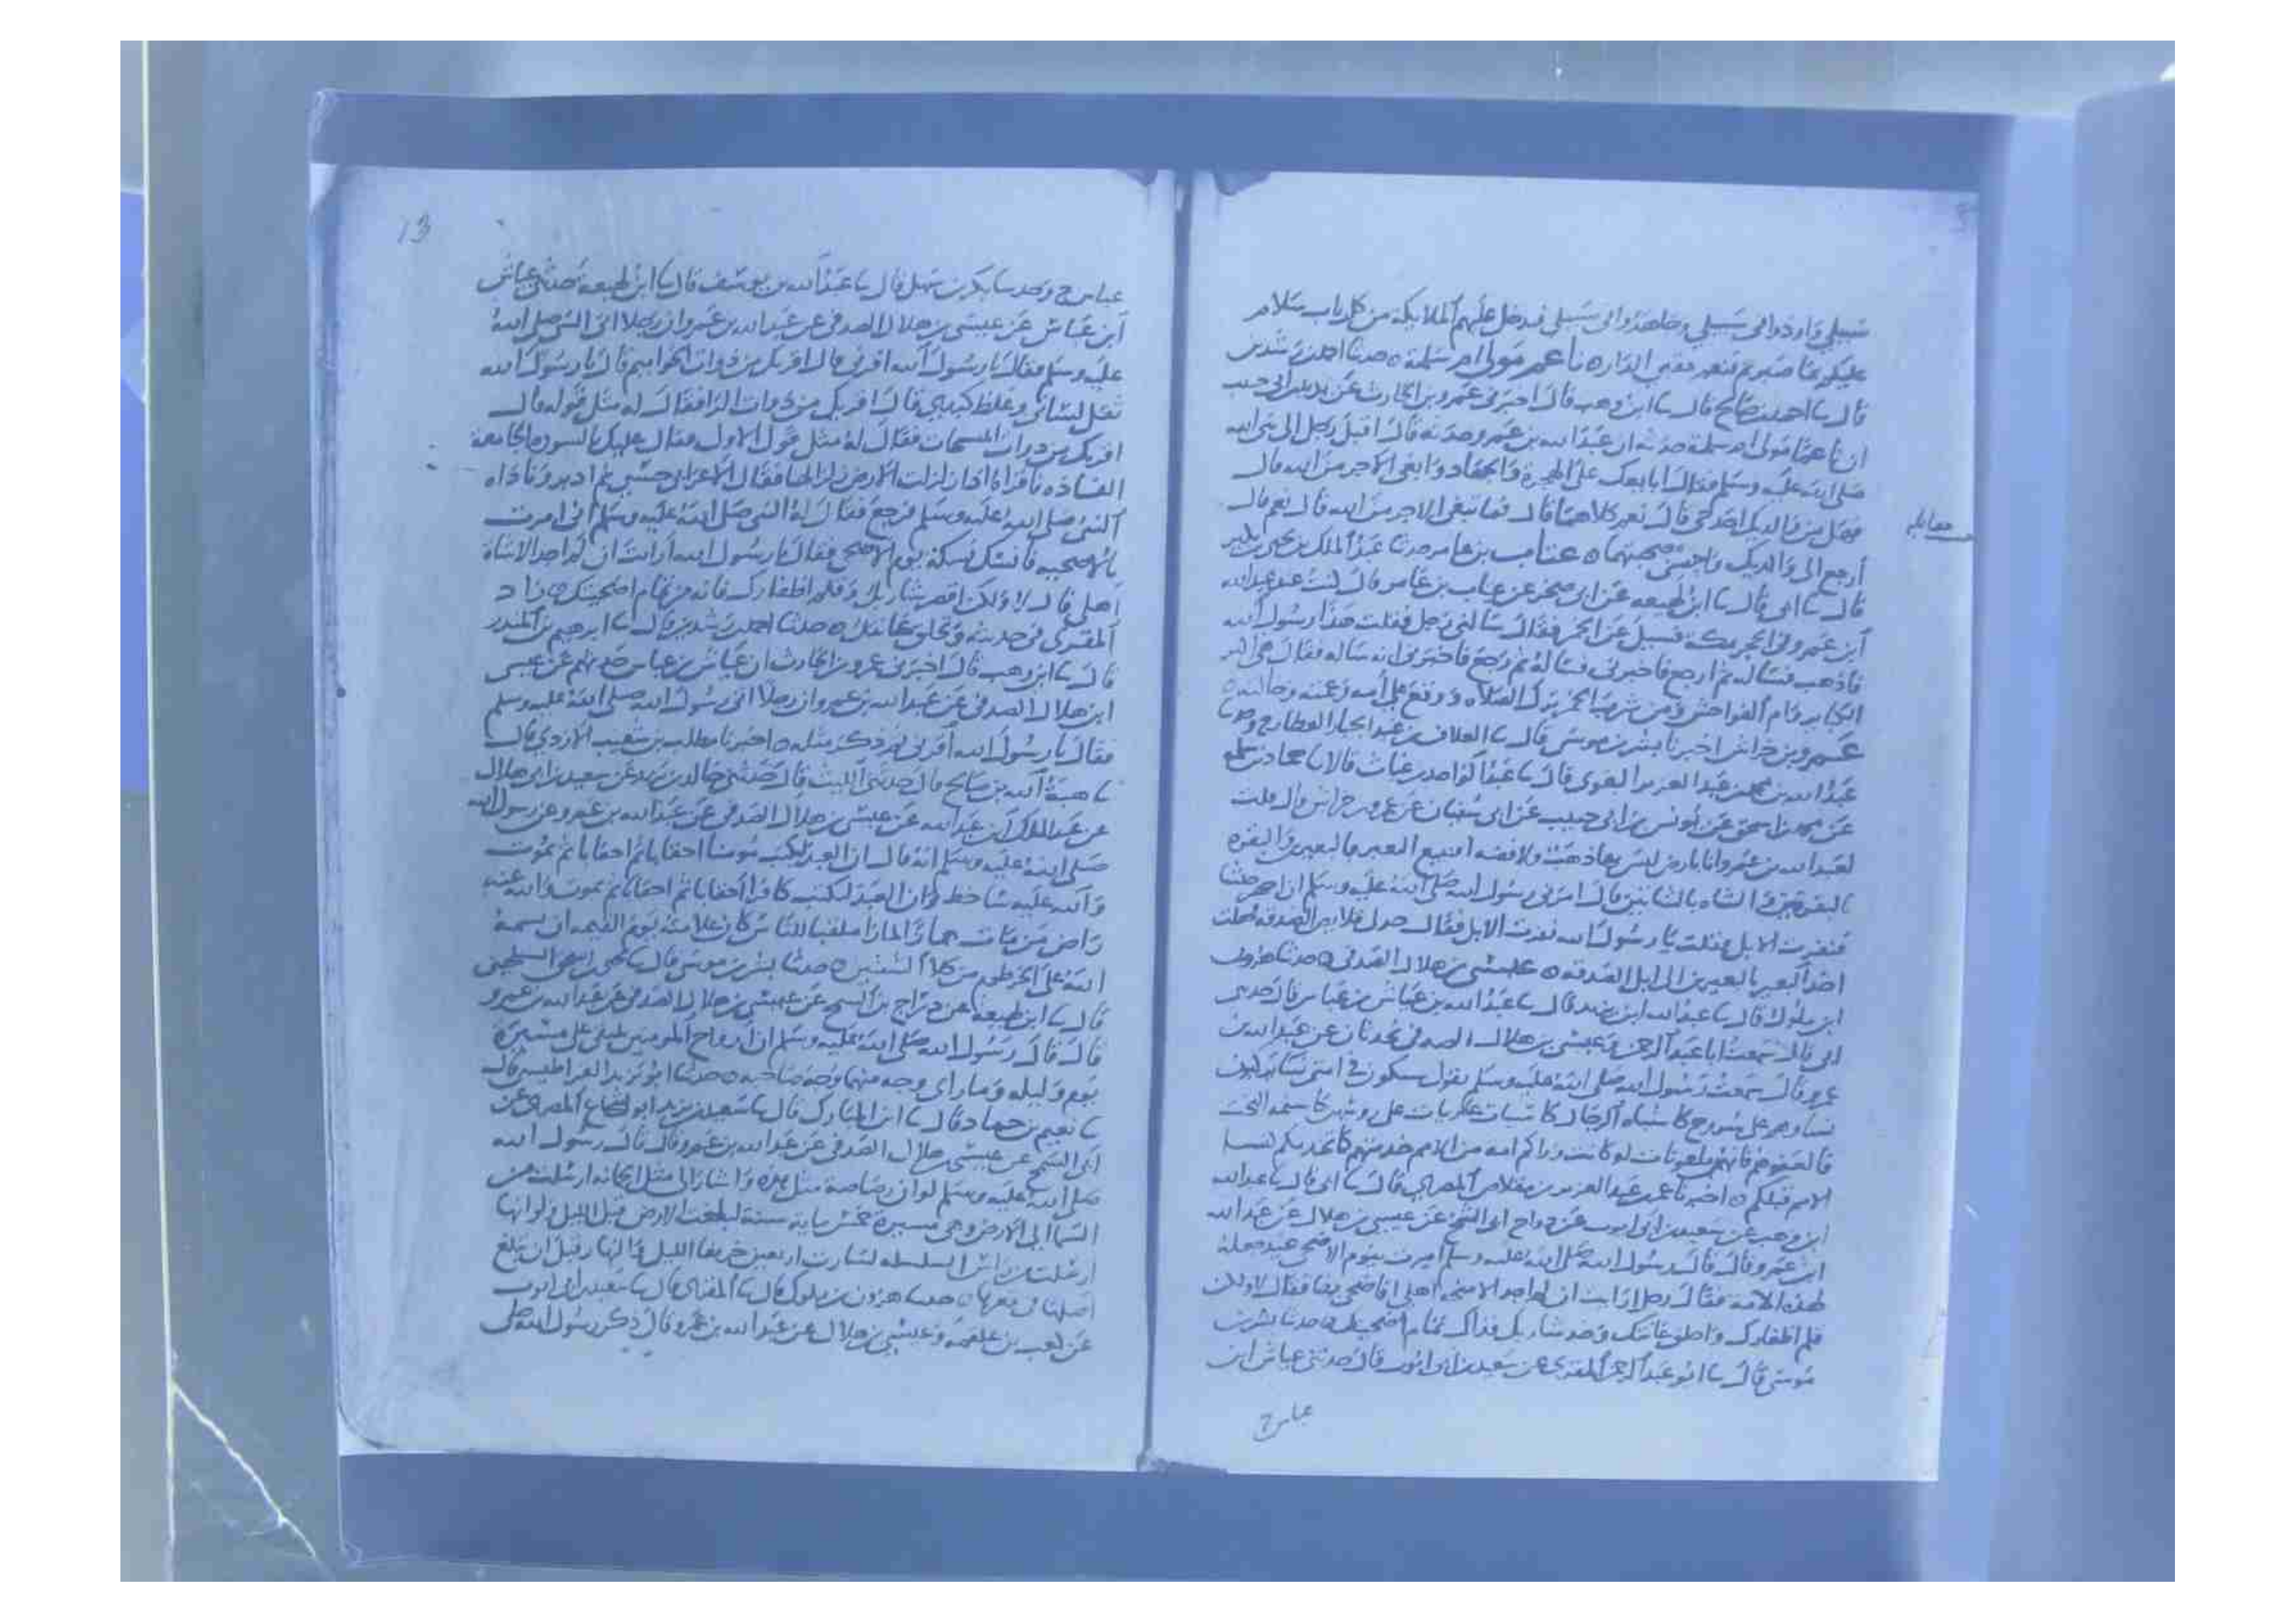 سبيلي واوذوا في سبيلي وجاهدوا في سبيلي فتدخل عليهم الملايكة من كل باب سلام
عليكم بما صبرتم فنعم عقبى الدار ه ناعم مولى ام سلمة ه حدثنا احمد بن رشدين
قال نا احمد بن صالح قال نا ابن وهب قال اخبرني عمرو بن الحارث عن يزيد بن ابي حبيب
ان ناعما مولى ام سلمة حدثه ان عبد الله بن عمرو حدثه قال اقبل رجل الى نبي الله
صلى الله عليه وسلم فقال ابايعك على الهجرة والجهاد وابتغي الاجر من الله قال
فهل من والديك احد حي قال نعم كلاهما قال فتبتغي الاجر من الله قال نعم قال
ارجع الى والديك فاحسن صحبتهما ه عتاب بن عامر حدثنا عبد الملك بن يحيى بن بكير
قال نا ابي قال نا ابن لهيعه عن ابي صخر عن عتاب بن عامر قال كنت عند عبد الله
ابن عمرو في الحجر بمكة فسيل عن الخمر فقال سالني رجل فقلت هذا رسول الله
فاذهب فساله ثم ارجع فاخبرني فساله ثم رجع فاخبرني انه ساله فقال هي اكبر
الكباير وام الفواحش ومن شرب الخمر ترك الصلاه ووقع على امه وعمته وخالته ه
عمرو بن حراش اخبرنا بشر بن موسى قال نا العلاف بن عبد الجبار العطار ح وحدثنا
عبد الله بن محمد بن عبد العزيز البغوي قال نا عبد الواحد بن غياث قالا نا حماد بن سلمه
عن محمد بن اسحق عن يونس بن ابي حبيب عن ابي سفيان عن عمرو بن حراش قال قلت
لعبد الله بن عمرو انا بارض ليس بها ذهب ولا فضه افنبيع البعير بالبعيرين والبقره
بالبقرتين والشاه بالشاتين قال امرني رسول الله صلى الله عليه وسلم ان اجهز جيشا
فنفدت الابل فقلت يا رسول الله نفدت الابل فقال خذ لي قلايص الصدقه فجعلت
اخذ البعير بالبعيرين الى ابل الصدقه ه عيسى بن هلال الصدفي ه حدثنا هرون
ابن ملول قال نا عبد الله ابن يزيد قال نا عبد الله بن عياش بن عباس قال حدثني
ابي قال سمعت ابا عبد الرحمن وعيسى بن هلال الصدفي يحدثان عن عبد الله بن
عمرو قال سمعت رسول الله صلى الله عليه وسلم يقول سيكون في امتي رجال يركبون
نساوهم على سروج كاشباه الرجال كاسيات عاريات على رؤسهن كاسنمه البخت
فالعنوهن فانهن ملعونات لو كانت وراكم امه من الامم خدمتهم كما خدمكم نسا
الامم قبلكم ه اخبرنا عمر بن عبد العزيز بن مقلاص المصري قال نا ابي قال نا عبد الله
ابن وهب عن سعيد بن ابي ايوب عن دراج ابي السمح عن عيسى بن هلال عن عبد الله
ابن عمرو قال قال رسول الله صلى الله عليه وسلم امرت بيوم الاضحى عيد جعله
لهذه الامه فقال رجل ارايت ان لم اجد الا منيحه اهلي افاضحي بها فقال لا ولكن
قلم اظفارك واحلق عانتك وخذ شاربك فذاك تمام اضحيتك ه حدثنا بشر بن
موسى قال نا ابو عبد الرحمن المقري عن سعيد بن ابي ايوب قال حدثني عياش ابن
عباس ح
مقابله
13
عباس ح وحدثنا بكر بن سهل قال نا عبد الله بن يوسف قال نا ابن لهيعه حدثني عياش
ابن عباس عن عيسى بن هلال الصدفي عن عبد الله بن عمرو ان رجلا اتى النبي صلى الله
عليه وسلم فقال يا رسول الله اقرني قال اقريك من ذوات الحواميم قال يا رسول الله
ثقل لساني وغلظ كبدي قال اقريك من ذوات الرا فقال له مثل قوله قال
اقريك من ذوات المسبحات فقال له مثل قول الاول فقال عليك بالسوره الجامعة
الفاذه فاقراه اذا زلزلت الارض زلزالها فقال الاعرابي حسبي ثم ادبر فناداه
النبي صلى الله عليه وسلم فرجع فقال له النبي صلى الله عليه وسلم اني امرت
بالاضحيه فانسك نسكة يوم الاضحى فقال يا رسول الله ارايت ان لم اجد الا شاة
اهلي قال لا ولكن اقصر شاربك وقلم اظفارك فانه من تمام اضحيتك ه زاد
المقري في حديثه وتحلق عانتك ه حدثنا احمد بن رشدين قال نا ابرهيم بن المنذر
قال نا ابن وهب قال اخبرني عمرو بن الحارث ان عياش بن عباس حدثهم عن عيسى
ابن هلال الصدفي عن عبد الله بن عمرو ان رجلا اتى رسول الله صلى الله عليه وسلم
فقال يا رسول الله اقرني ثم ذكر مثله ه اخبرنا مطلب بن شعيب الازدي قال
نا عبد الله بن صالح قال حدثني الليث قال حدثني خالد بن يزيد عن سعيد بن ابي هلال
عن عبد الملك بن عبد الله عن عيسى بن هلال الصدفي عن عبد الله بن عمرو عن رسول الله
صلى الله عليه وسلم انه قال ان العبد ليكتب مومنا احقابا ثم احقابا ثم يموت
والله عليه ساخط وان العبد ليكتب كافرا احقابا ثم احقابا ثم يموت والله عنه
راض من مات همازا لمازا ملقبا للناس كان علامته يوم القيمه ان يسمه
الله على الخرطوم من كلا الشفتين ه حدثنا بشر بن موسى قال نا يحيى بن اسحق السيلحيني
قال نا ابن لهيعه عن دراج بن السمح عن عيسى بن هلال الصدفي عن عبد الله بن عمرو
قال قال رسول الله صلى الله عليه وسلم ان ارواح المومنين تلتقي على مسيرة
يوم وليله وما راى وجه منهما وجه صاحبه ه حدثنا ابو يزيد القراطيسي قال
نا نعيم بن حماد قال نا ابن المبارك قال نا سعيد بن يزيد ابو شجاع المصري عن
ابي السمح عن عيسى بن هلال الصدفي عن عبد الله بن عمرو قال قال رسول الله
صلى الله عليه وسلم لو ان رصاصة مثل هذه واشار الى مثل الجمجمه ارسلت من
السما الى الارض وهي مسيرة خمس ماية سنة لبلغت الارض قبل الليل ولو انها
ارسلت من راس السلسله لسارت اربعين خريفا الليل والنهار قبل ان تبلغ
اصلها او قعرها ه حدثنا هرون بن ملول قال نا المقري قال نا سعيد بن ابي ايوب
عن كعب بن علقمه وعيسى بن هلال عن عبد الله بن عمرو قال ذكر رسول الله صلى